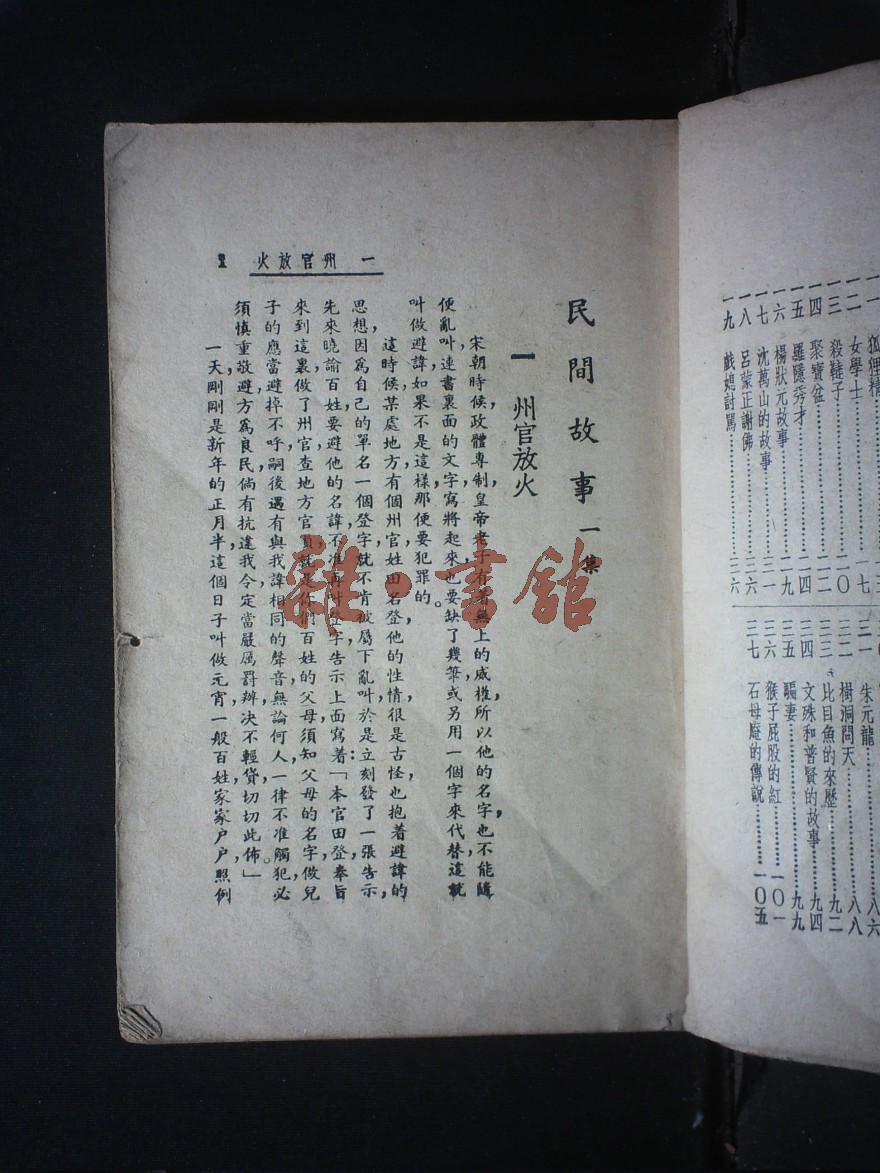 一一 狐狸精
一二 女學士
一三 殺韃子
一四 聚寶盆
一五 羅隱秀才
一六 楊狀元故事
一七 沈萬山的故事
一八 呂蒙正謝佛
一九 戲媳討罵
二一 朱元龍……八六
二二 樹洞問天……八八
二三 比目魚的來歷……九二
二四 文殊和普賢的故事……九四
二五 驅妻……九九
二六 猴子屁股的紅……一〇一
二七 石母庵的傳說……一〇五
民間故事一集
一 州官放火
宋朝時候,政體專制,皇帝老子有著無上的威權,所以他的名字,也不能隨
便亂叫,連書裏面的文字,寫將起來,也要缺了幾筆,或另用一個字來代替,這就
叫做避諱,如果不是這樣,那便要犯罪的。
這時候某處地方,有個州官,姓田名登,他的性情,很是古怪,也抱著避諱的
思想,因爲自己的單名一個登字,就不肯被屬下亂叫,於是立刻發了一張告示,
先來曉諭百姓,要避他的名諱,不准再叫登字,告示上面寫著:「本官田登,奉旨
來到這裏,做了州官,查地方官員,就是你們百姓的父母,須知父母的名字,做兒
子的應當避掉不呼,嗣後遇有與我諱相同的聲音,無論何人,一律不准觸犯,必
須慎重敬避,方爲良民,倘有抗違我令,定當嚴厲罰辦,決不輕貸,切切此佈。」
一天,剛剛是新年的正月半,這個日子,叫做元宵,一般百姓,家家戶戶,照例
一 州官放火
1
雜·書館